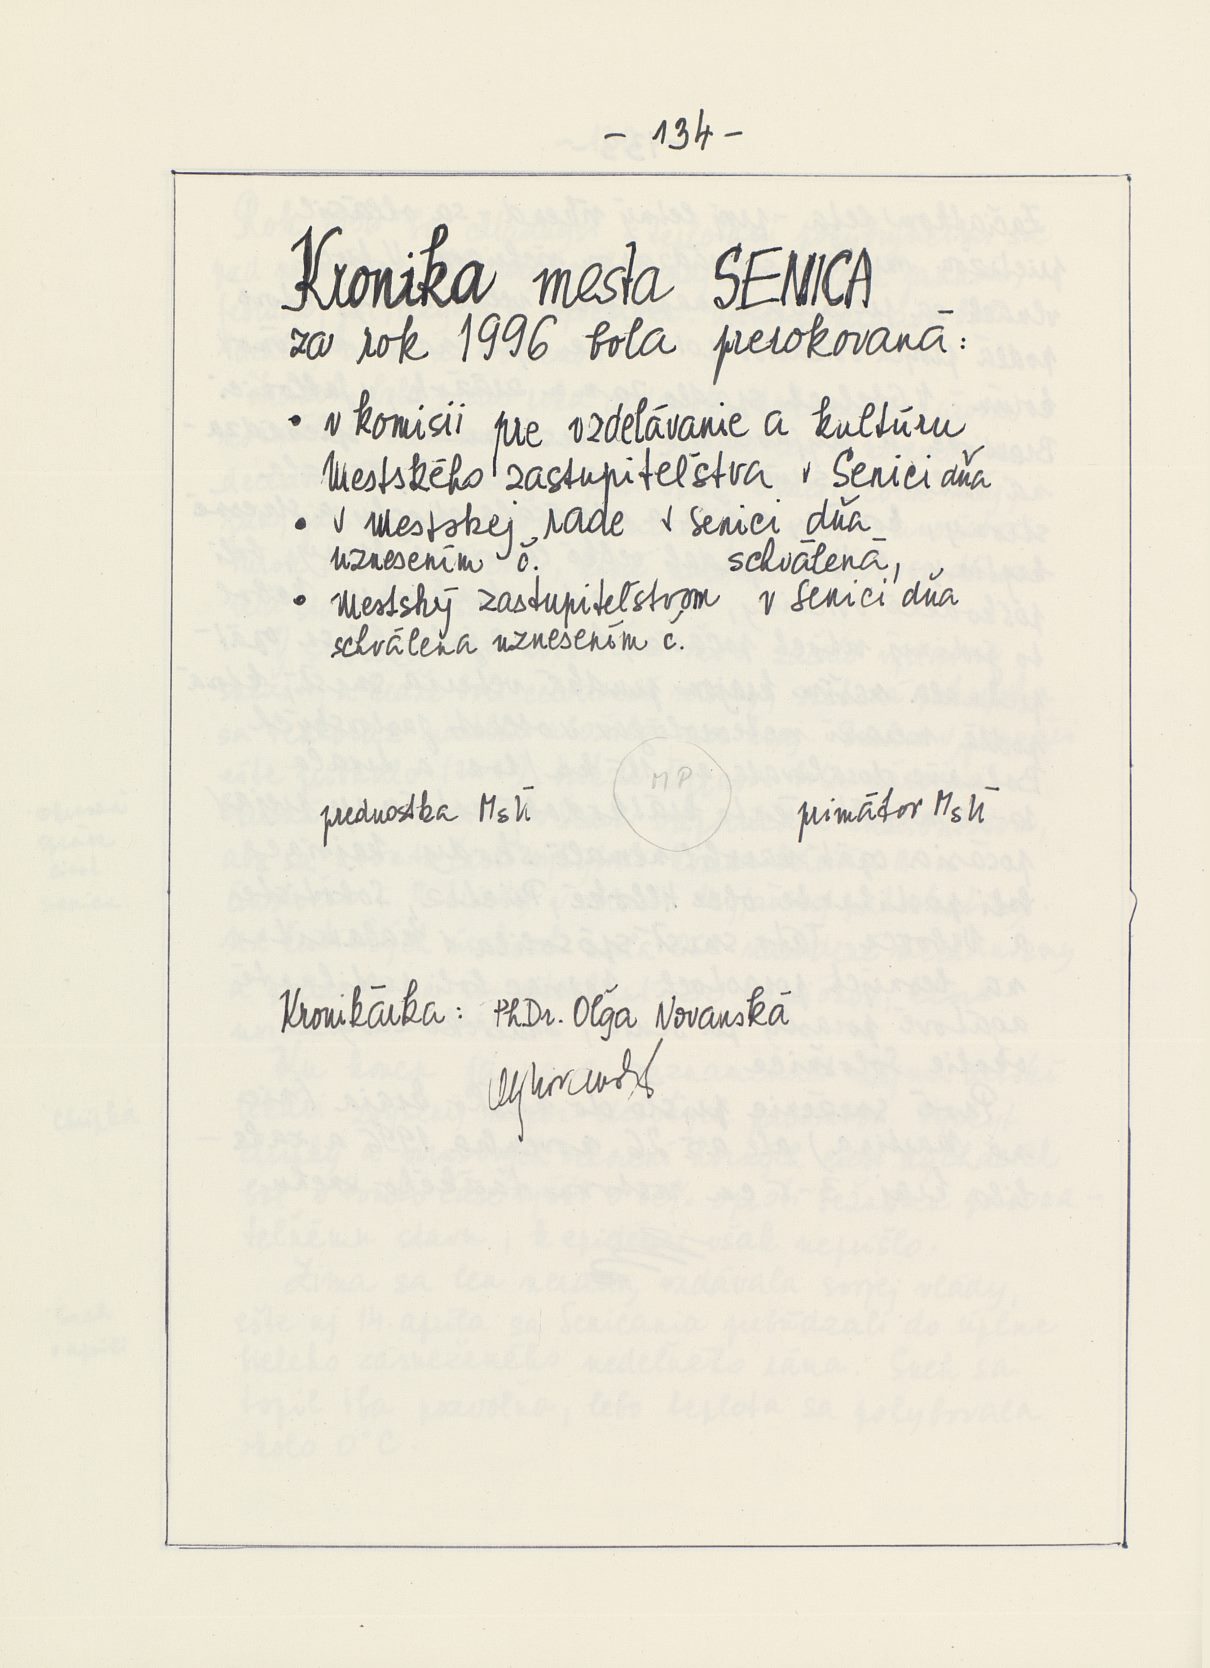 - 134 -
Kronika mesta SENICA
za rok 1996 bola prerokovaná:
• v komisii pre vzdelávanie a kultúru
Mestského zastupiteľstva v Senici dňa
• v Mestskej rade v Senici dňa
uznesením č. schválená,
• Mestský zastupiteľstvom v Senici dňa
schválená uznesením č.
MP
prednostka MsÚ primátor MsÚ
Kronikárka: PhDr. Oľga Novanská